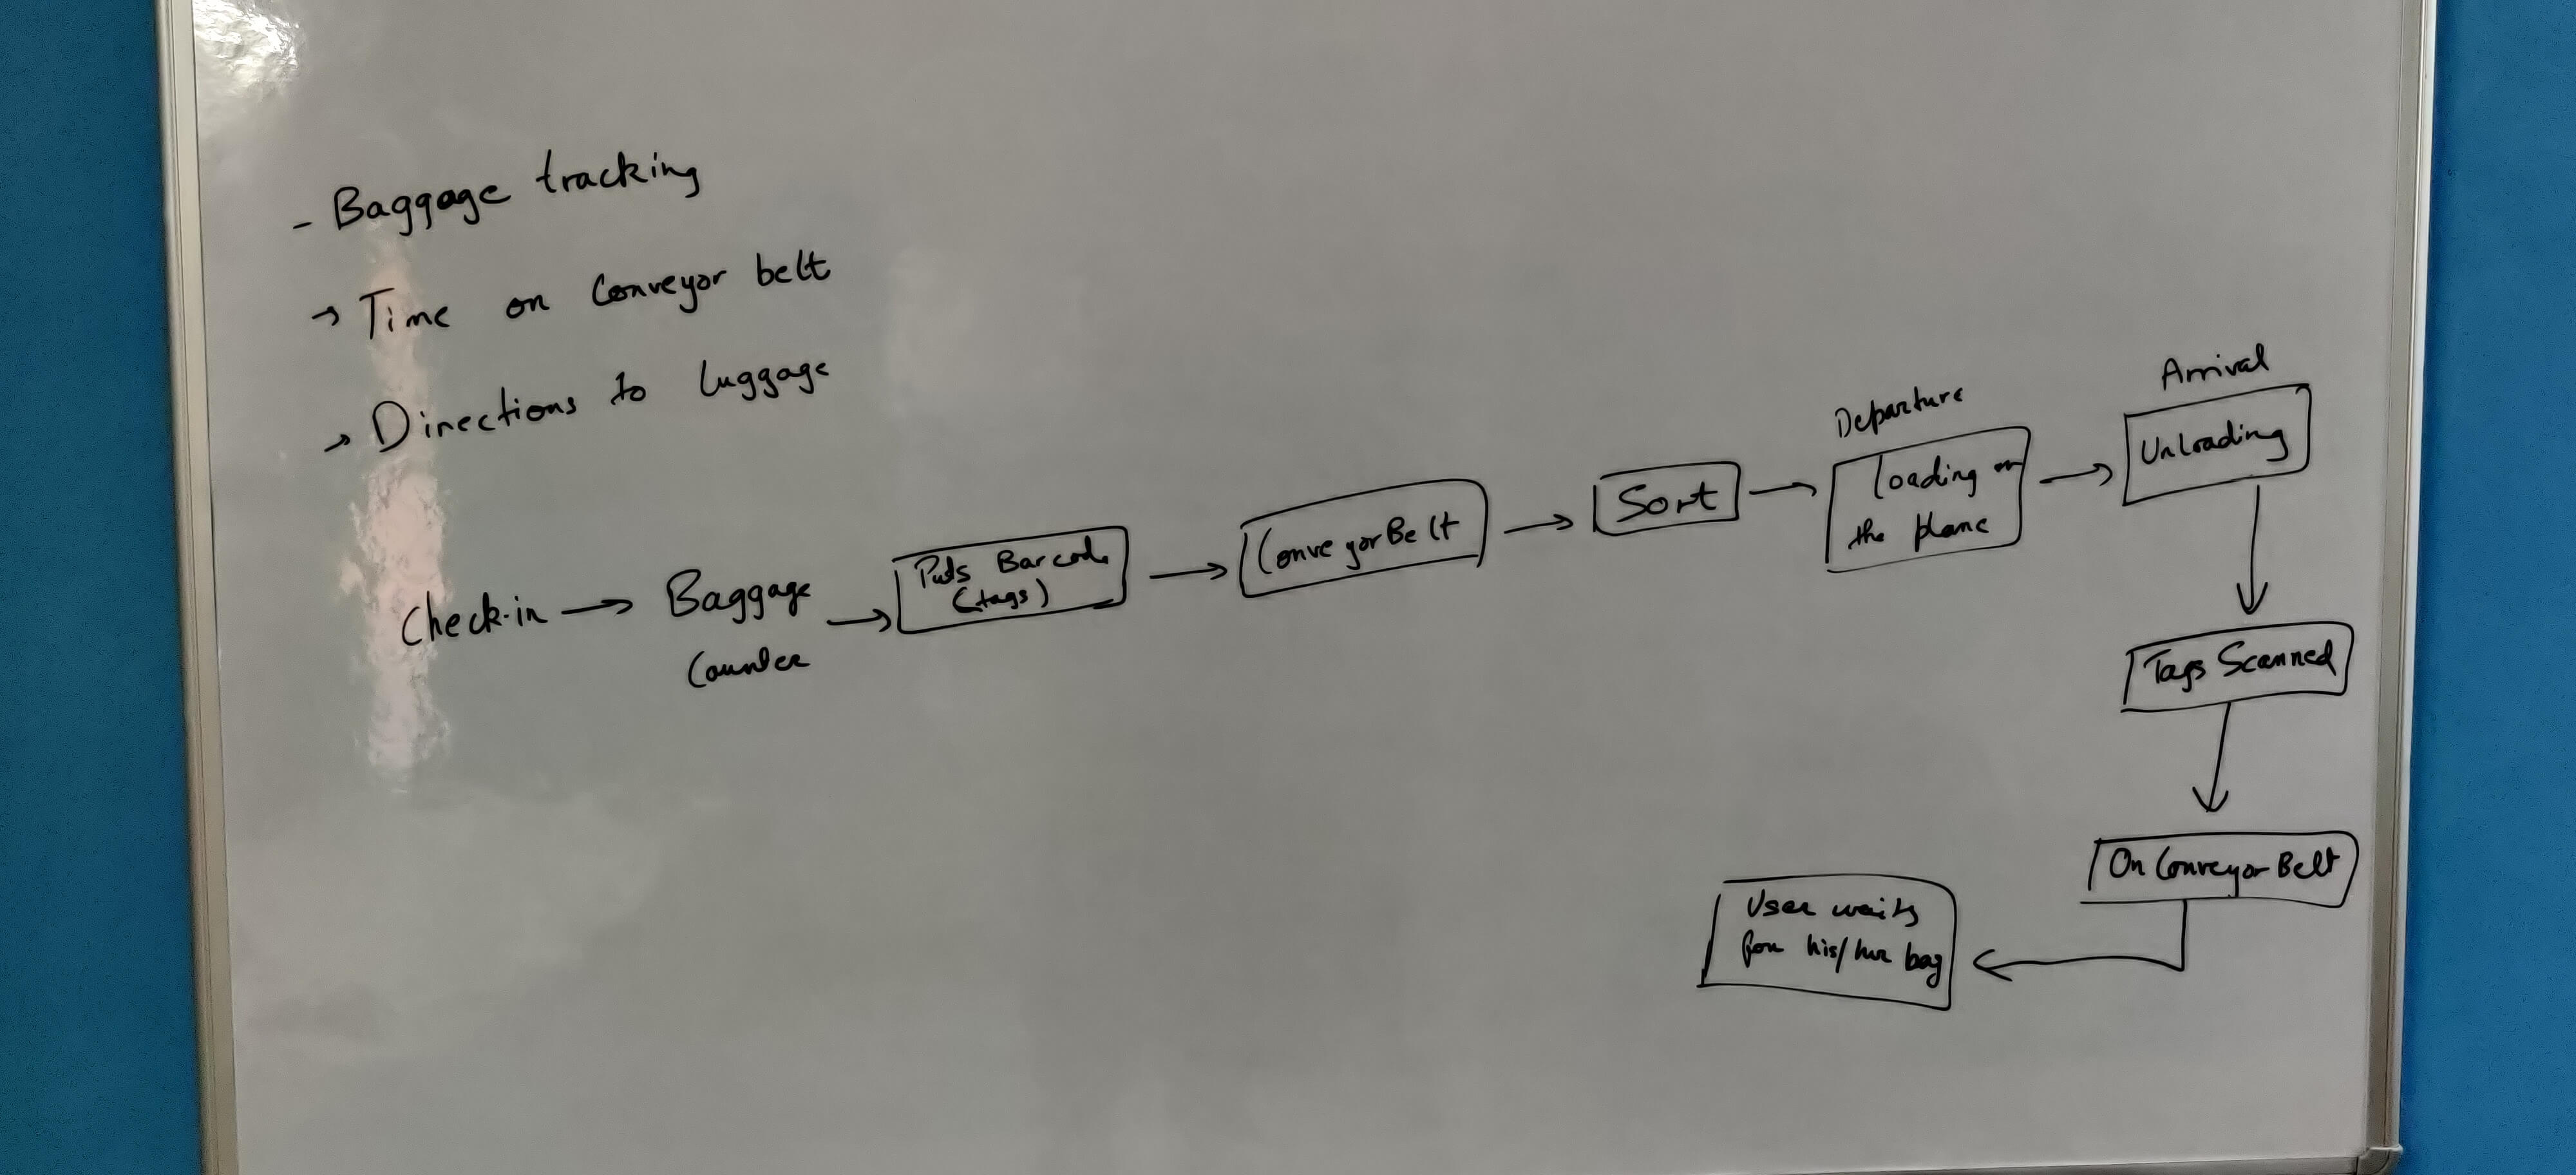 - Baggage tracking
→ Time on Conveyor belt
→ Directions to Luggage
Check-in → Baggage
Counter
→ Puts Barcode
(tags)
→ Conveyor Belt
→ Sort
→ Departure
Loading on
the plane
→ Arrival
Unloading
Tags Scanned
On Conveyor Belt
User waits
for his/her bag